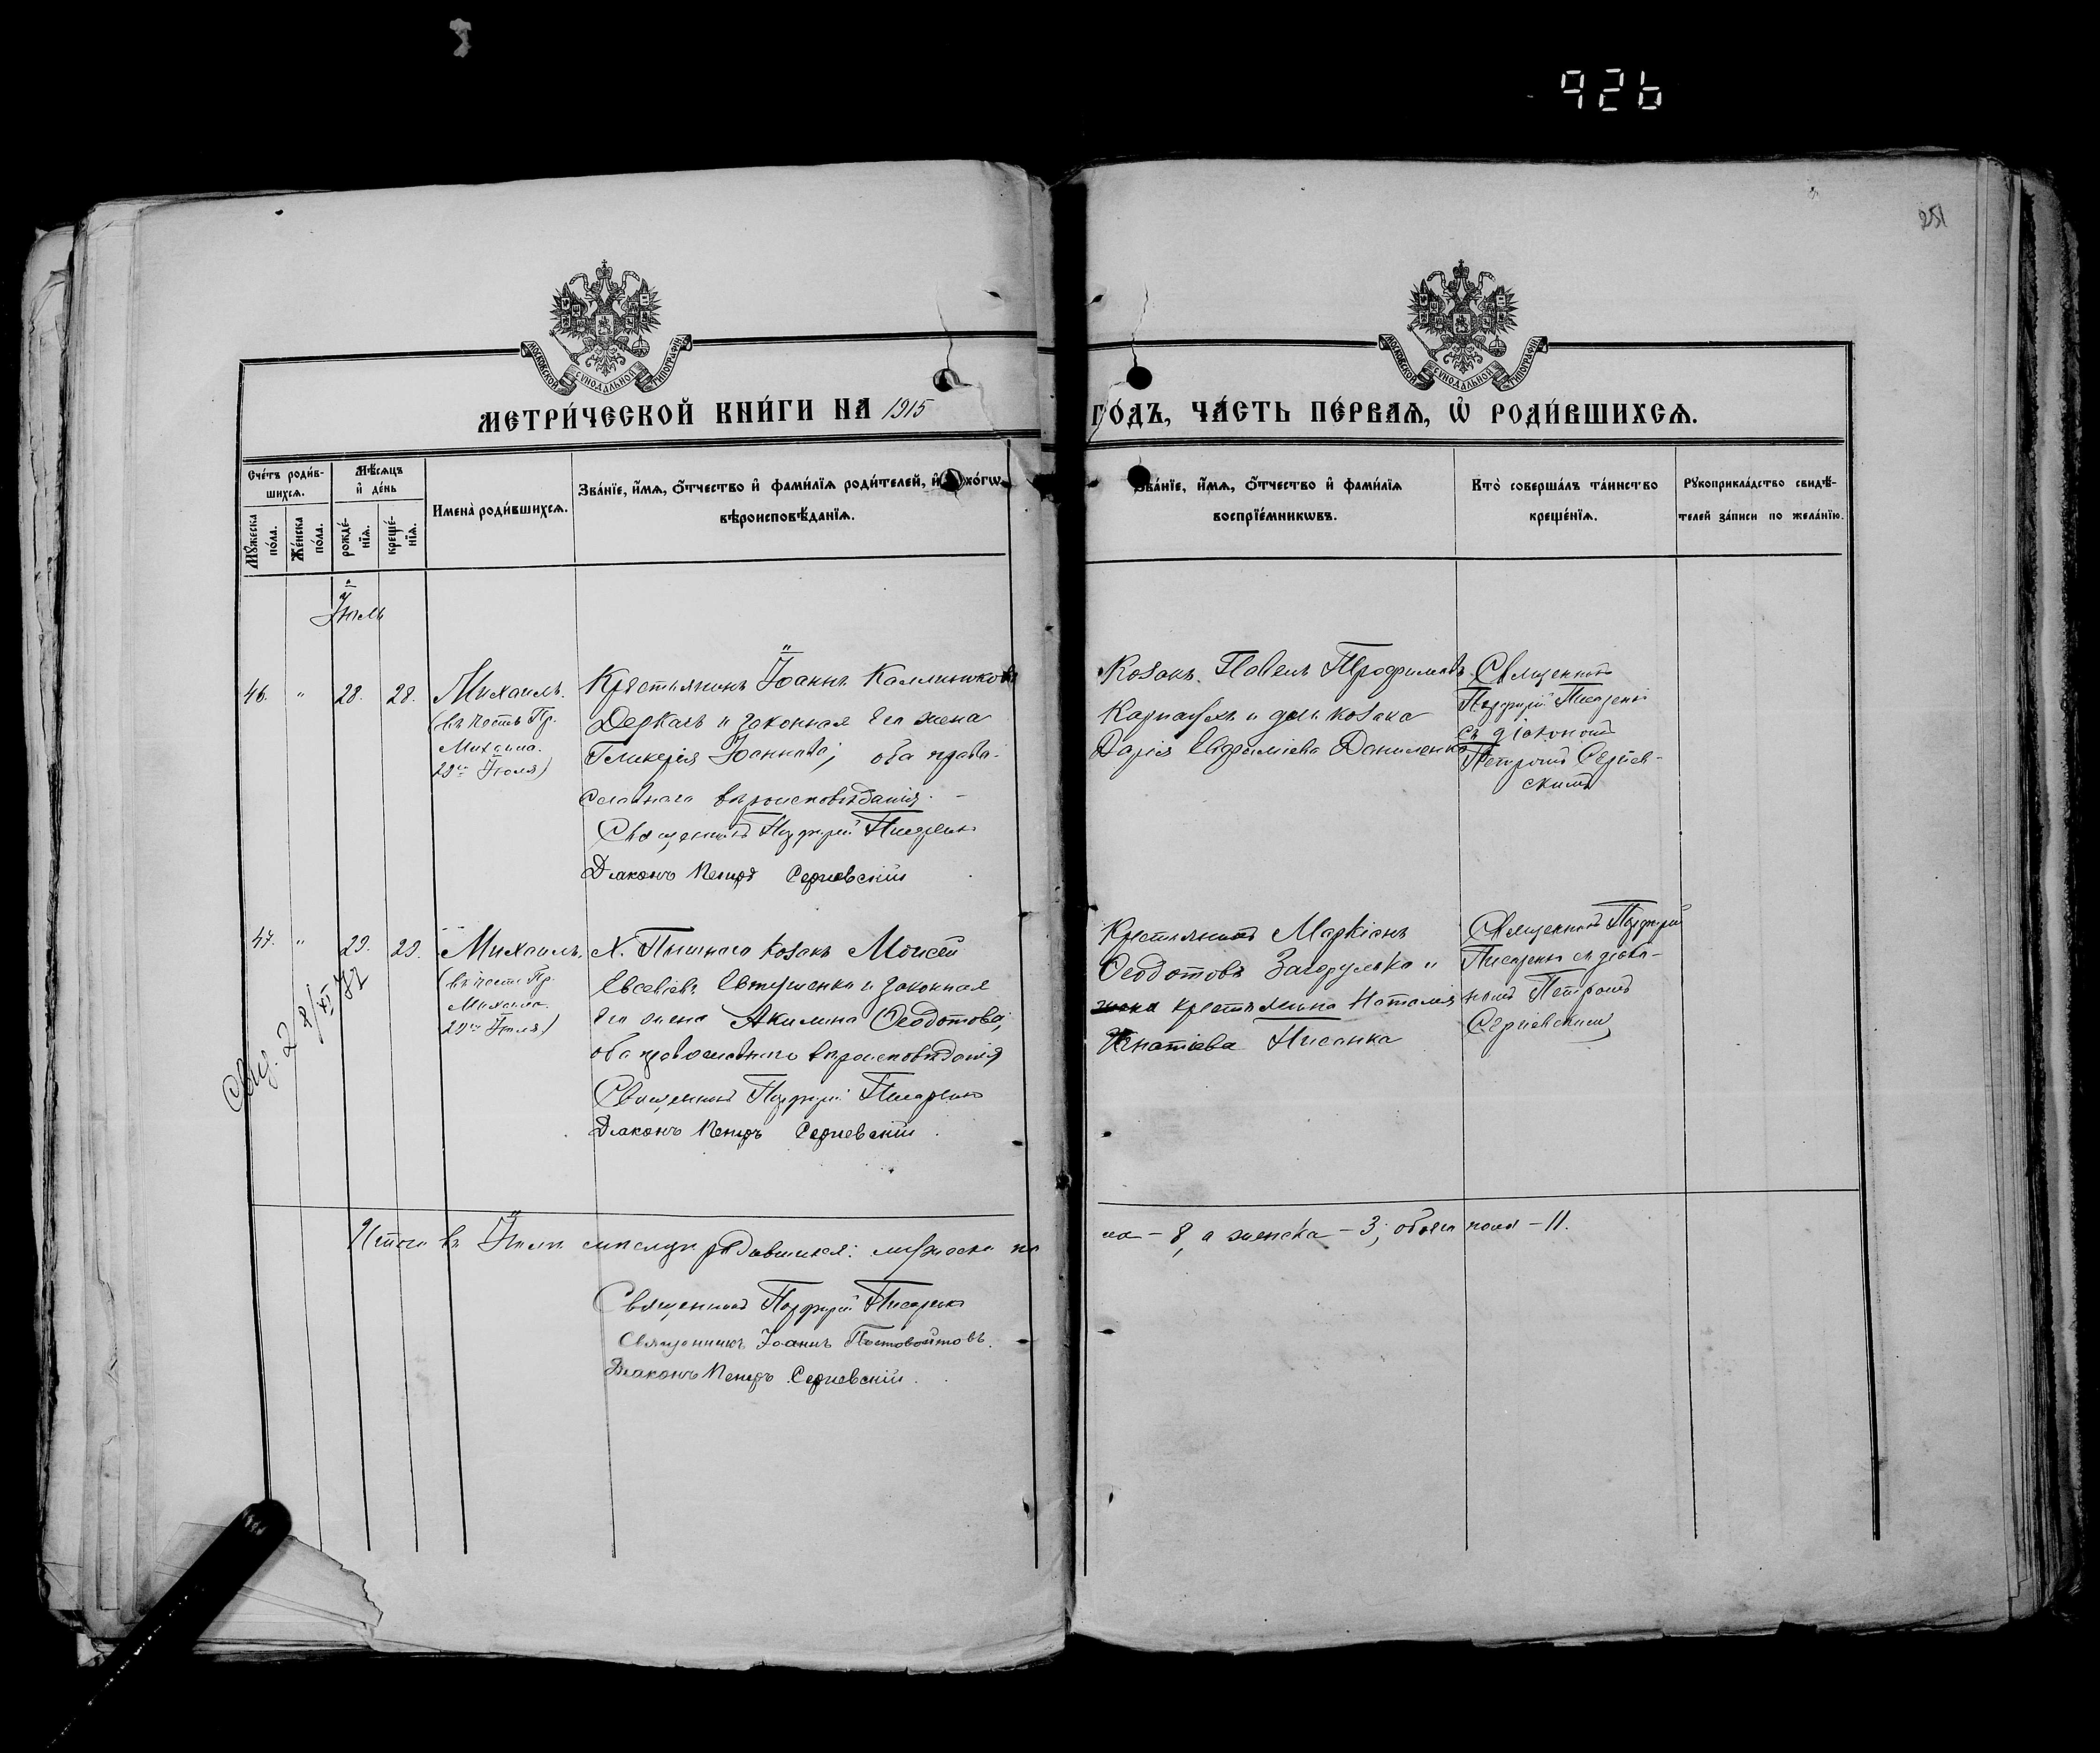 926
251
МОСКОВСКОЙ СУНОДАЛЬНОЙ ТИПОГРАФІИ
МОСКОВСКОЙ СУНОДАЛЬНОЙ ТИПОГРАФІИ
МЕТРИ́ЧЕСКОЙ КНИ́ГИ НА 1915
ГО́ДЪ, ЧА́СТЬ ПЕ́РВАѦ, Ѡ҆ РОДИ́ВШИХСѦ.
Сче́тъ роди́в-
шихсѧ.
Мꙋ́жеска
по́ла.
Же́нска
по́ла.
Мѣ́сѧцъ
и҆ де́нь
рожде́-
нїѧ.
креще́-
нїѧ.
Имена̀ роди́вшихсѧ.
Зва́нїе, и҆́мѧ, ѻ҆́тчество и҆ фами́лїѧ роди́телей, и҆
вѣроисповѣ́данїѧ.
Зва́нїе, и҆́мѧ, ѻ҆́тчество и҆ фами́лїѧ
воспрїе́мникѡвъ.
Кто̀ соверша́лъ та́инство
креще́нїѧ.
Рꙋкоприкла́дство свидѣ́-
телей за́писи по жела́нїю.
Іюль
46. " 28. 28. Михаилъ.
(въ честь Пр.
Михаила.
29го Іюля)
Крестьянинъ Іоаннъ Каллиниковъ
Деркачъ и законная его жена
Гликерія Іоаннова; оба право-
славнаго вѣроисповѣданія. –
Священникъ Порфирій Писаренко
Діаконъ Петръ Сергіевскій
Козакъ Павелъ Трофимовъ
и дочь козака
Дарія Евфиміева Даниленко
Священникъ
Порфирій Писаренко
съ діакономъ
Петромъ Сергіев-
скимъ
47. " 29. 29. Михаилъ.
(въ честь Пр.
Михаила.
29го Іюля)
Х. Пышнаго козакъ Моисей
Евсевіевъ Евтушенко и законная
его жена Акилина Ѳеодотова;
оба православнаго вѣроисповѣданія
Священникъ Порфирій Писаренко
Діаконъ Петръ Сергіевскій.
Крестьянинъ Маркіанъ
Ѳеодотовъ Загорулько и
жена крестьянина Наталія
Игнатіева Писанка
Священникъ Порфирій
Писаренко съ діако-
номъ Петромъ
Сергіевскимъ
Итого въ Іюлѣ мѣсяцѣ родившихся: мужеска по
ла – 8, а женска – 3; обоего пола – 11.
Священникъ Порфирій Писаренко
Священникъ Іоаннъ Постовойтовъ.
Діаконъ Петръ Сергіевскій.